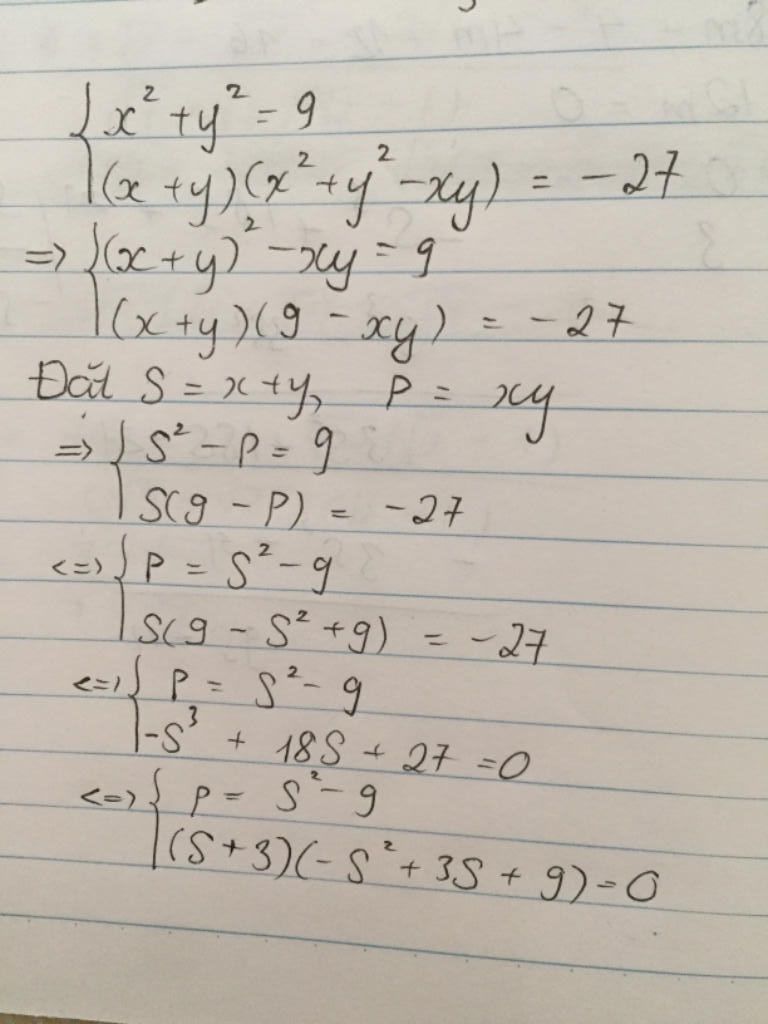 { x² + y² = 9
(x + y)(x² + y² - xy) = -27
=> { (x + y)² - xy = 9
(x + y)(9 - xy) = -27
Đặt S = x + y, P = xy
=> { S² - P = 9
S(9 - P) = -27
<=> { P = S² - 9
S(9 - S² + 9) = -27
<=> { P = S² - 9
-S³ + 18S + 27 = 0
<=> { P = S² - 9
(S + 3)(-S² + 3S + 9) = 0